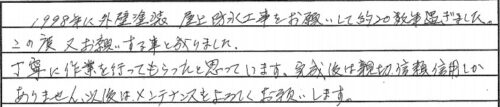 1998年に外壁塗装 屋上防水工事をお願いして約20数年過ぎました。
この度又お願いする事と成りました。
丁寧に作業を行ってもらったと思っています。完成後は親切信頼信用しか
ありません。以後はメンテナンスをよろしくお願いします。